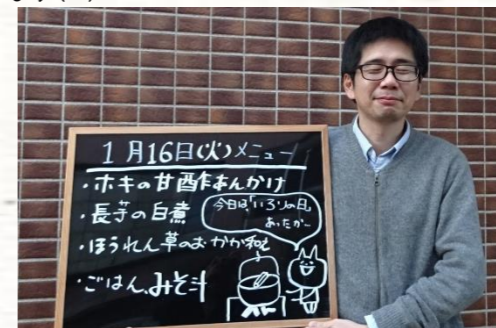 1月16日(火)メニュー
・ホキの甘酢あんかけ
・長芋の白煮
・ほうれん草のおかか和え
・ごはん、みそ汁
今日は「いろりの日」
あったかー